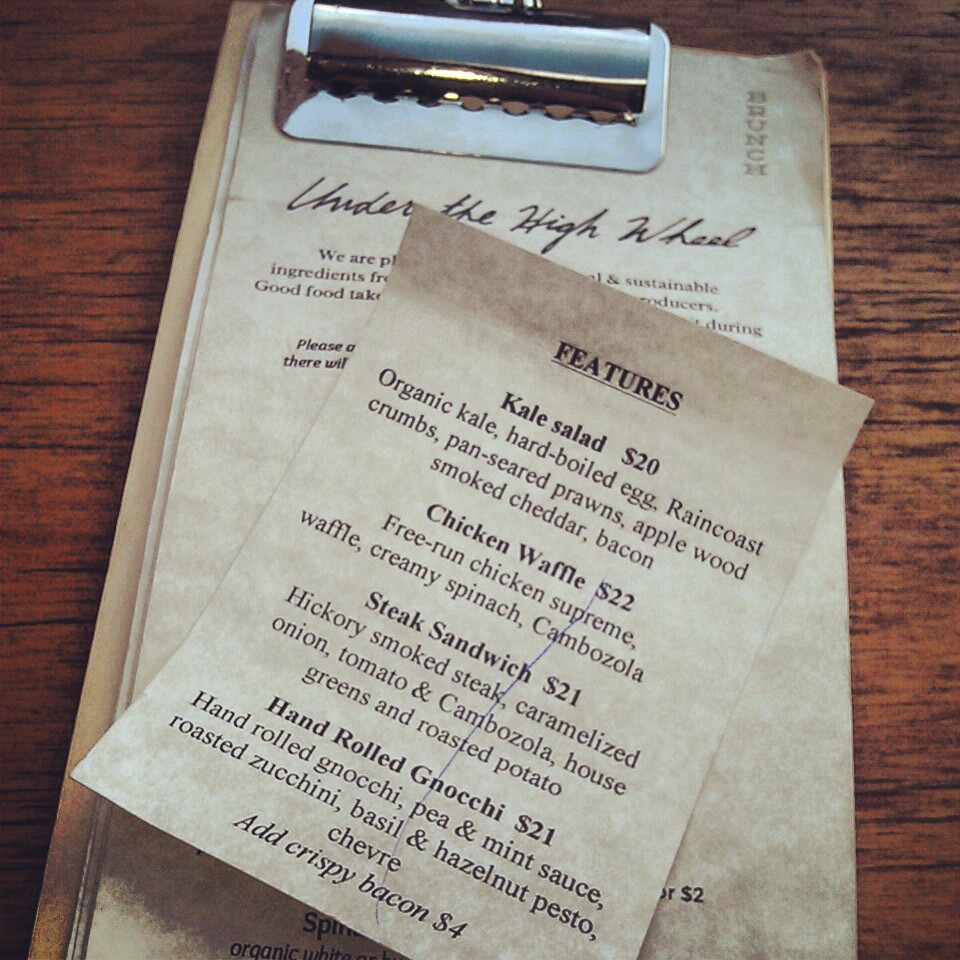 BRUNCH
Under the High Wheel
We are
& sustainable
ingredients
Good food
during
Please
there
FEATURES
Kale salad $20
Organic kale, hard-boiled egg, Raincoast
crumbs, pan-seared prawns, apple wood
smoked cheddar, bacon
Chicken Waffle $22
Free-run chicken supreme,
waffle, creamy spinach, Cambozola
Steak Sandwich $21
Hickory smoked steak, caramelized
onion, tomato & Cambozola, house
greens and roasted potato
Hand Rolled Gnocchi $21
Hand rolled gnocchi, pea & mint sauce,
roasted zucchini, basil & hazelnut pesto,
chevre
Add crispy bacon $4
$2
organic white or